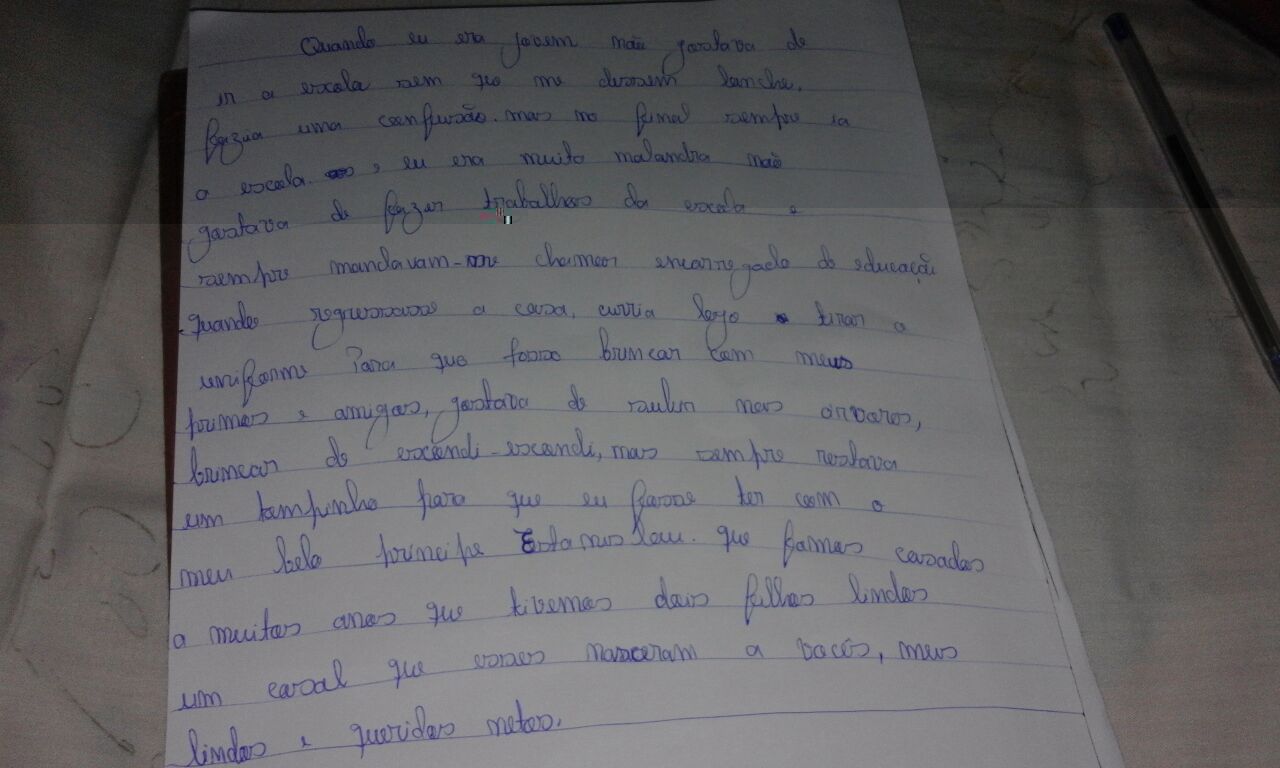 Quando eu era jovem não gostava de
ir a escola sem que me dessem lanche,
fazia uma confusão. mas no final sempre ia
a escola. , eu era muito malandra não
gostava de fazer trabalhos da escola e
sempre mandavam-me chamar encarregado de educação
quando regressasse a casa, curria logo tirar o
uniforme Para que fosse brincar com meus
primos e amigos, gostava de subir nos arvores,
brincar de escondi-escondi, mas sempre restava
um tempinho para que eu fosse ter com o
meu belo principe Estanislau. que fomos casados
a muitos anos que tivemos dois filhos lindos
um casal que esses nasceram a vocês, meus
lindos e queridos netos.